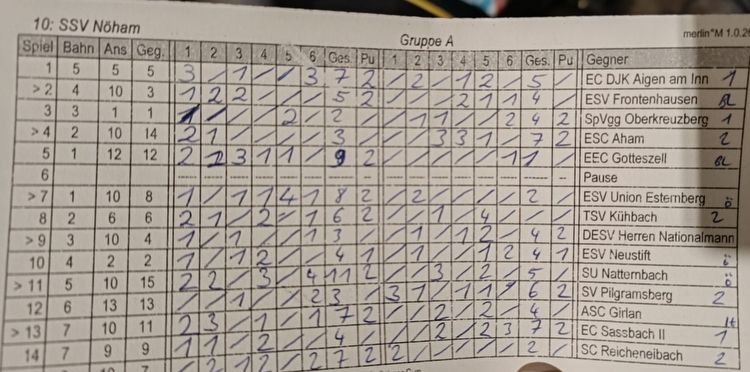 10: SSV Nöham
Gruppe A
merlin°M 1.0.26
Spiel Bahn Ans Geg. 1 2 3 4 5 6 Ges. Pu 1 2 3 4 5 6 Ges. Pu Gegner
1 5 5 5 3 / 1 / / 3 7 2 / 2 / 1 2 / 5 / EC DJK Aigen am Inn 1
> 2 4 10 3 1 2 2 / / / 5 2 / / / 2 1 1 4 / ESV Frontenhausen BL
3 3 1 1 / / / / 2 / 2 / / 1 1 / / 2 4 2 SpVgg Oberkreuzberg 1
> 4 2 10 14 2 1 / / / / 3 / / / 3 3 1 / 7 2 ESC Aham 2
5 1 12 12 2 2 3 1 1 / 9 2 / / / / / 1 1 / EEC Gotteszell BL
6 Pause
> 7 1 10 8 1 / 1 1 4 1 8 2 / 2 / / / / 2 / ESV Union Esternberg ö
8 2 6 6 2 1 / 2 / 1 6 2 / / 3 / 4 / / TSV Kühbach 2
> 9 3 10 4 1 / 1 / / 1 3 / / / 1 / 1 2 4 2 DESV Herren Nationalmann
10 4 2 2 1 / 1 2 / / 4 1 / 1 / / 1 2 4 1 ESV Neustift ö
> 11 5 10 15 2 2 / 3 / 4 11 2 / / 3 / 2 / 5 / SU Natternbach ö
12 6 13 13 / / 1 / / 2 3 / 3 1 / 1 1 / 6 2 SV Pilgramsberg 2
> 13 7 10 11 2 3 / 1 / 1 7 2 / / 2 / 2 / 4 / ASC Girlan It
14 7 9 9 1 1 / 2 / / 4 / / / 2 / 2 3 7 2 EC Sassbach II 1
10 7 / 2 1 2 / 2 7 2 2 / / / / / SC Reicheneibach 2